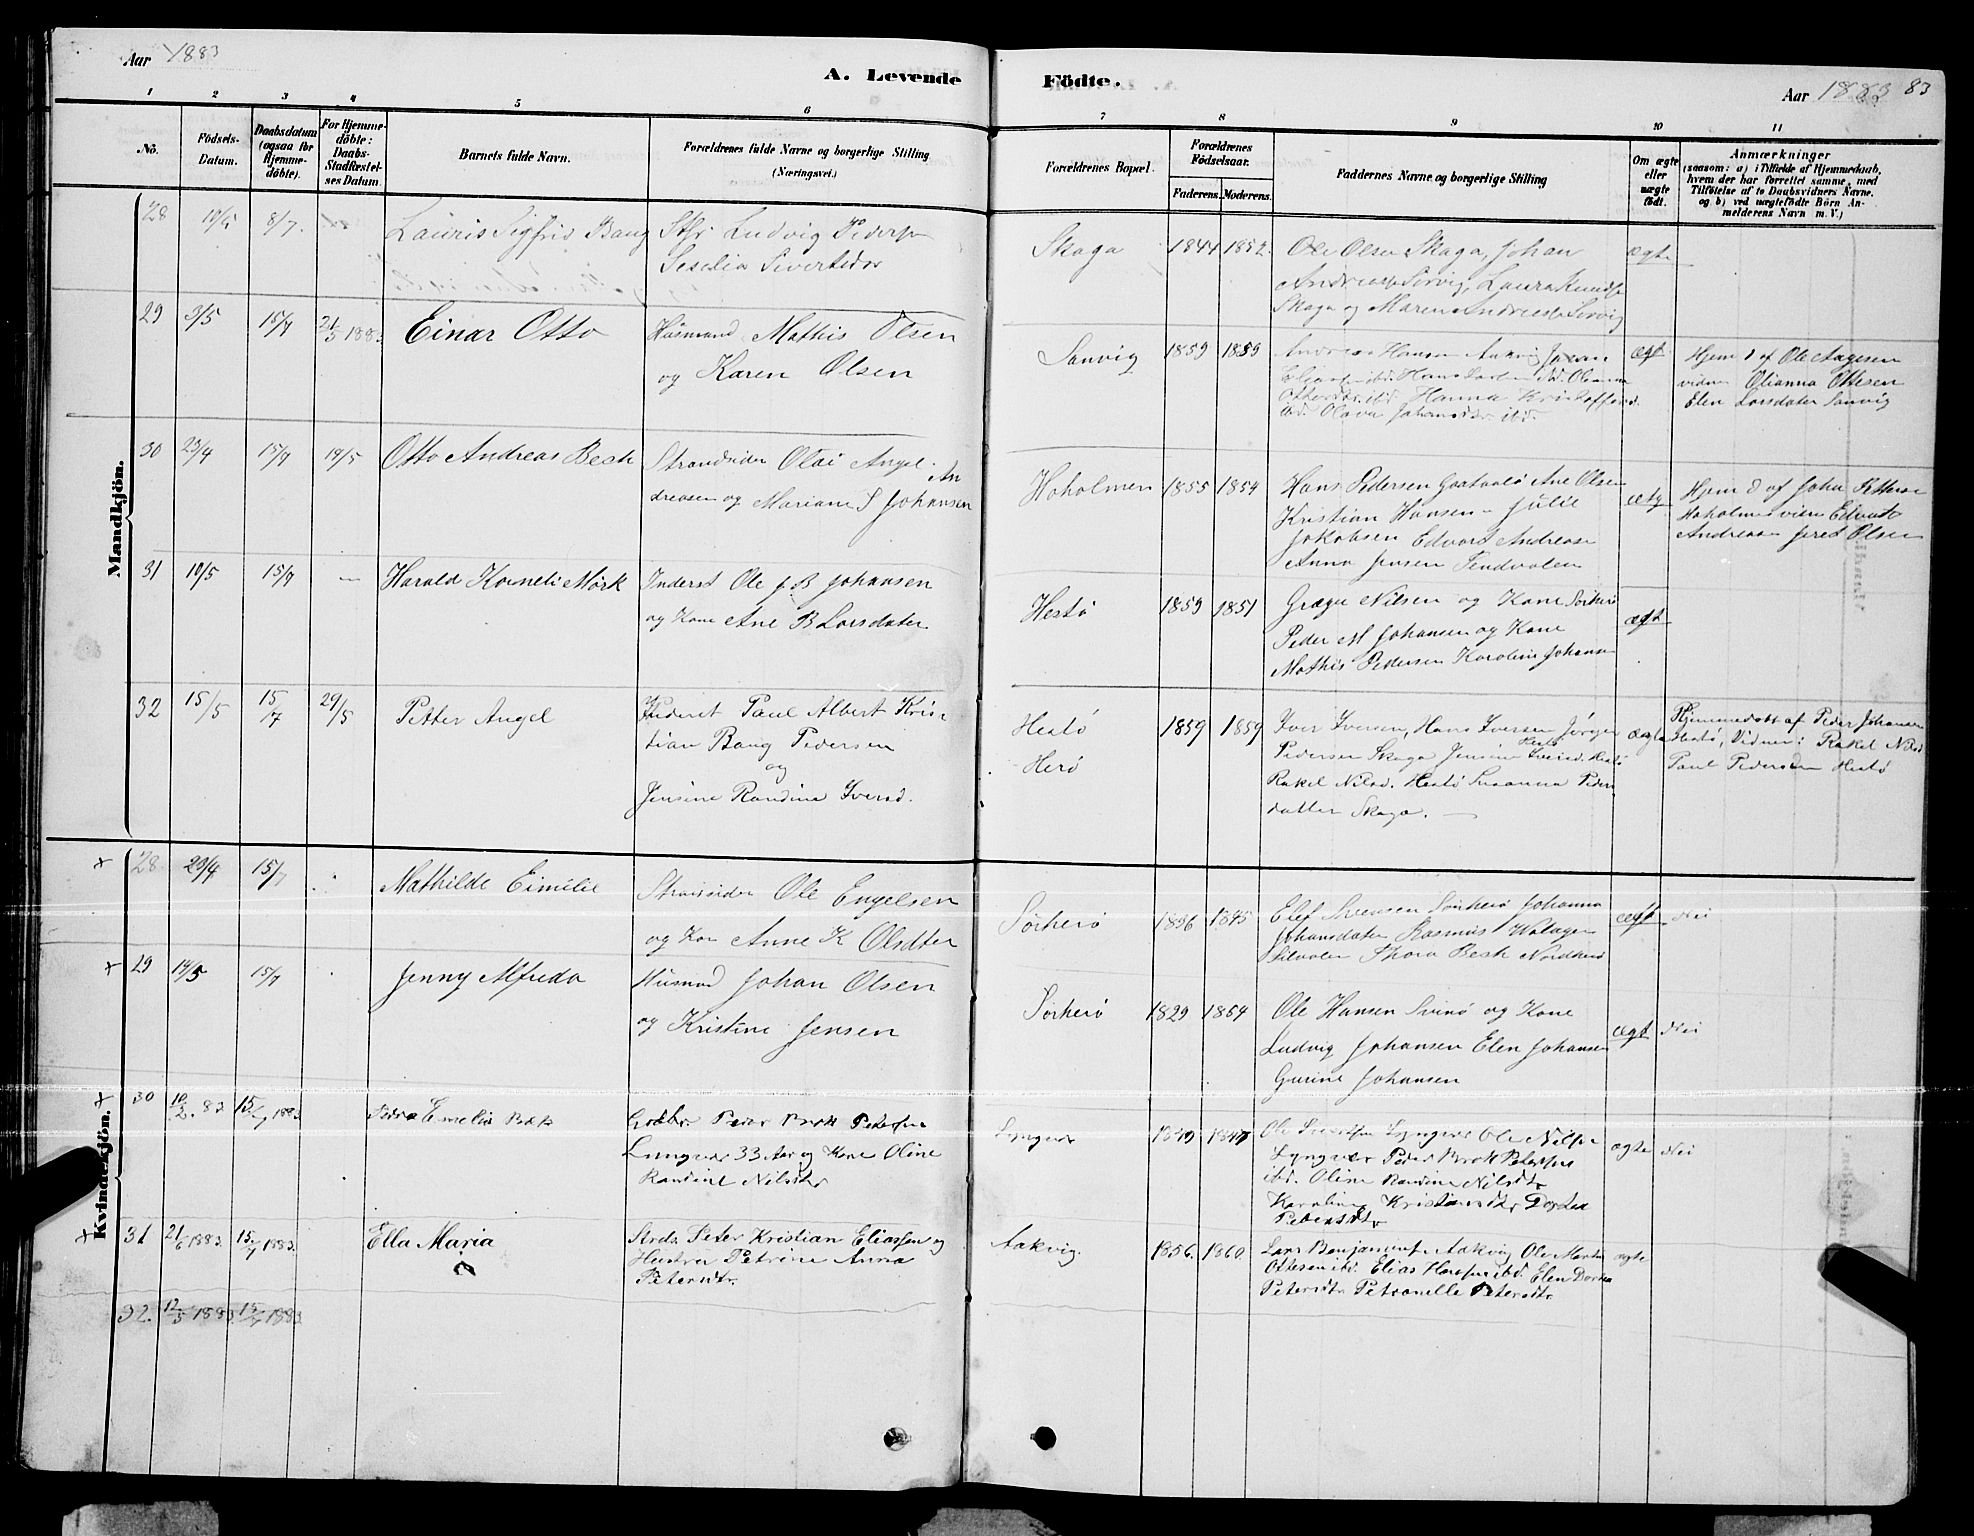 Aar 1883
A. Levende Födte.
Aar 1883 83
1 2 3 4 5 6 7 8 9 10 11
No. Födsels-Datum. Daabsdatum (ogsaa for Hjemme-döbte). For Hjemme-döbte: Daabs-Stadfæstel-ses Datum. Barnets fulde Navn. Forældrenes fulde Navne og borgerlige Stilling (Næringsvei.) Forældrenes Bopæl. Forældrenes Födselsaar. Faderens. Moderens. Faddernes Navne og borgerlige Stilling Om ægte eller uægte födt. Anmærkninger (saasom: a) i Tilfælde af Hjemmedaab, hvem der har forrettet samme, med Tilföielse af to Daabsvidners Navne. og b) ved uægtefödte Börn An-melderens Navn m. V.)
Mandkjön.
28 10/5 8/7. Lauris Sigfrid Bang Ludvig Pederse
Seselia Sivertsdtr
Skaga 1844 1852. Ole Olsen Skaga, Johan ægte
Andreasse Sörvig, Laura Knudse
Skaga og Maren Andreasse Sörvig
29 3/5 15/7 21/5 1883 Einar Otto Husmand Mathis Olsen
og Karen Olsen
Sanvig 1859 1859 Andreas Hansen Aakvig Johan
ibd. Hans Larsen ibd. Oleanna
Ottersdtr. ibd. Hanna Kristoffersd.
ibd. Olava Johansdtr ibd.
ægt Hjem d af Ole Aagesen
vidne Olianna Ottesen
Elen Larsdater Sanvig
30 23/4 15/7 19/5 Otto Andreas Bech Strandsider Olai Angel An
dreasen og Mariane S Johansen
Hoholmen 1855 1854 Hans Pedersen Ane Olsen
Kristian Hansen Julie
Jakobsen Edvard Andreasse
Anna Jensen Tendvalen
Hjem d af Johan Petterse
Hoholmen vidne Edvart
Andreasse Olsen
31 10/5 15/7 — Harald Korneli Mörk Inderst Ole J B Johansen
og Kone Ane B Larsdater
Hestö 1859 1851 Græger Nilsen og Kone Sörherö
Peder M Johansen og Kone
Mathis Pedersen Karoline Johanse
ægt
32 15/5 15/7 29/5 Petter Angel Inderst Paul Albert Kris
tian Bang Pedersen
og
Jensine Randine Iversd.
Hestö
Herö
1859 1859 Iver Iversen, Hans Iversen Jörgen
Pedersen Skaga Jensine Iversd. Hestö
Rakel Nilsd. Hestö Susanna Peder
datter Skaga. —
ægte Hjemmedöbt af Peder Johansen
Hestö, Vidner: Rakel Nilsd
Paul Pedersen Hestö
Kvindekjön.
x 28 29/4 15/7 Mathilde Eimilie Strandsider Ole Engelsen
og Kon Anne K Olsdtter
Sörherö 1836 1845 Elef Svensen Sörherö Johanna
Johansdater Rasmus
Thora Bech Nordherö
ægt Nei
x 29 14/5 15/7 Jenny Alfreda Husmnd Johan Olsen
og Kristine Jensen
Sörherö 1829 1854 Ole Hansen Svinö og Kone
Ludvig Johansen Elen Johansen
Gurine Johansen
ægt Nei
x 30 10/2. 83 15/7 1883 Emelia Bæk Gaardbr. Peder Brok Petersen
Lyngvær 33 Aar og Kone Oline
Randine Nilsdtr
Lyngvær 1849 1847 Ole Sivertsen Lyngvær Ole Nilse
Lyngvær Peder Brok Petersen
ibd. Oline Randine Nilsdtr
Karoline Kristiansdtr Dortea
Petersdtr
ægte Nei
x 31 21/6 1883. 15/7 1883. Ella Maria Strds. Peter Kristian Eliassen og
Hustru Petrine Anna
Petersdtr.
Aakvig. 1856. 1860 Lars Benjaminse Aakvig Ole Martin
Ottesen ibd. Elias Hansen ibd. Elen Dortea
Petersdtr Petronelle Petersdtr
ægte
32. 12/5 1883. 15/7 1883.